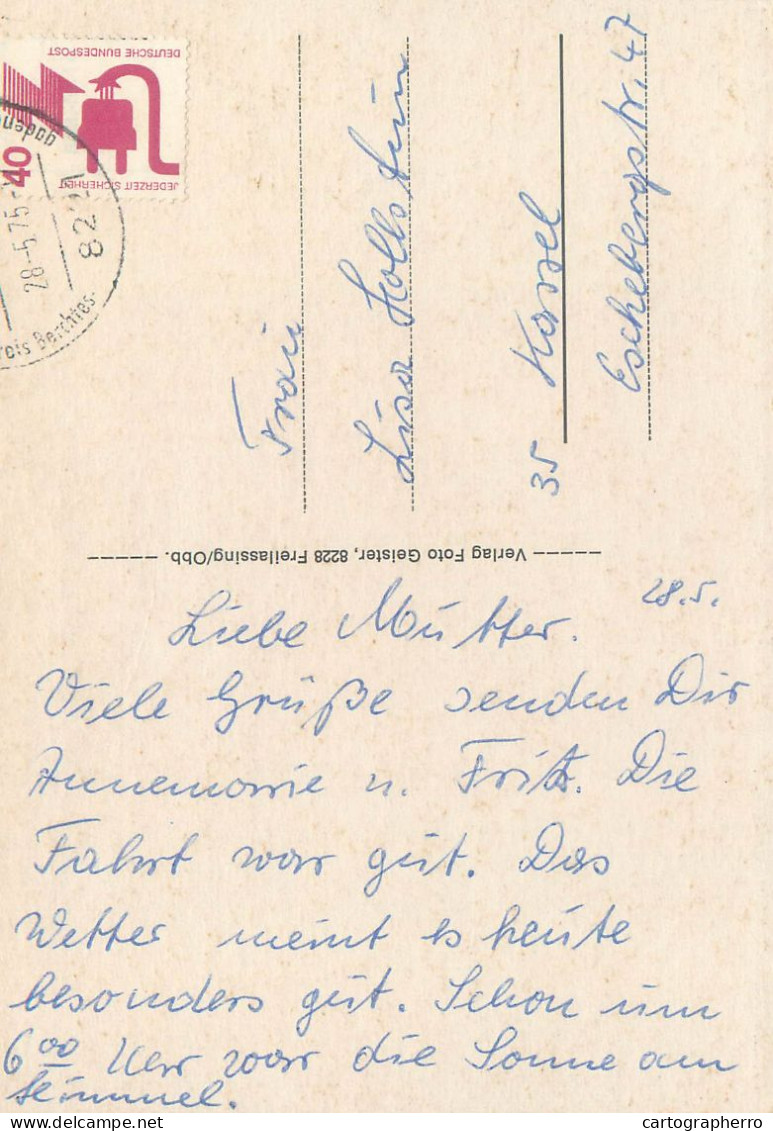 DEUTSCHE BUNDESPOST
JEDERZEIT SICHERHEIT
40
28-5.75
8221
Berchtes-
gaden
Frau
Lisa Hollstein
35 Kassel
Eschebergstr. 47
Verlag Foto Geister, 8228 Freilassing/Obb.
28.5.
Liebe Mutter.
Viele Grüße senden Dir
Annemarie u. Fritz. Die
Fahrt war gut. Das
Wetter meint es heute
besonders gut. Schon um
6⁰⁰ Uhr war die Sonne am
Himmel.
delcampe.net
cartographerro